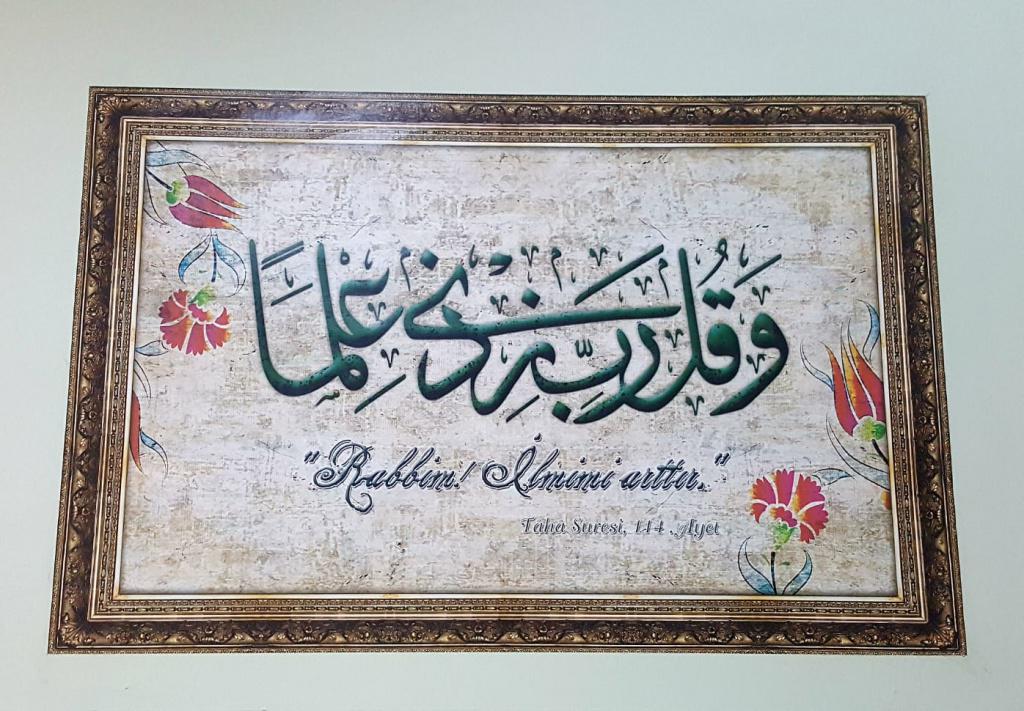 وَقُل رَّبِّ زِدْنِي عِلْمًا
"Rabbim! İlmimi arttır."
Taha Suresi, 114. Ayet